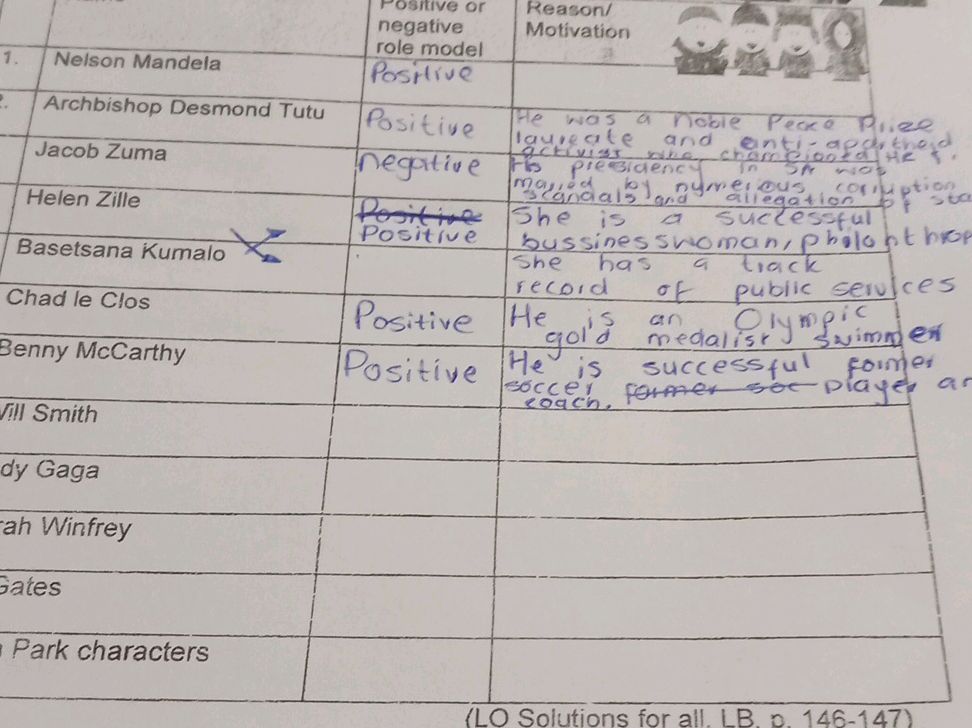 Positive or
negative
role model
Reason/
Motivation
1. Nelson Mandela
Positive
2. Archbishop Desmond Tutu
Positive
He was a Noble Peace Prize
laureate and anti-apartheid
who championed He
Jacob Zuma
negative
presidency in SA was
marred by numerious corruption
scandals and allegation of sta
Helen Zille
Positive
Positive
She is a successful
bussinesswoman, philonthrop
Basetsana Kumalo
She has a track
record of public services
Chad le Clos
Positive
He is an Olympic
gold medalist swimmer
Benny McCarthy
Positive
He is successful former
soccer former soc player an
coach.
Will Smith
dy Gaga
rah Winfrey
Gates
Park characters
(LO Solutions for all, LB, p. 146-147)